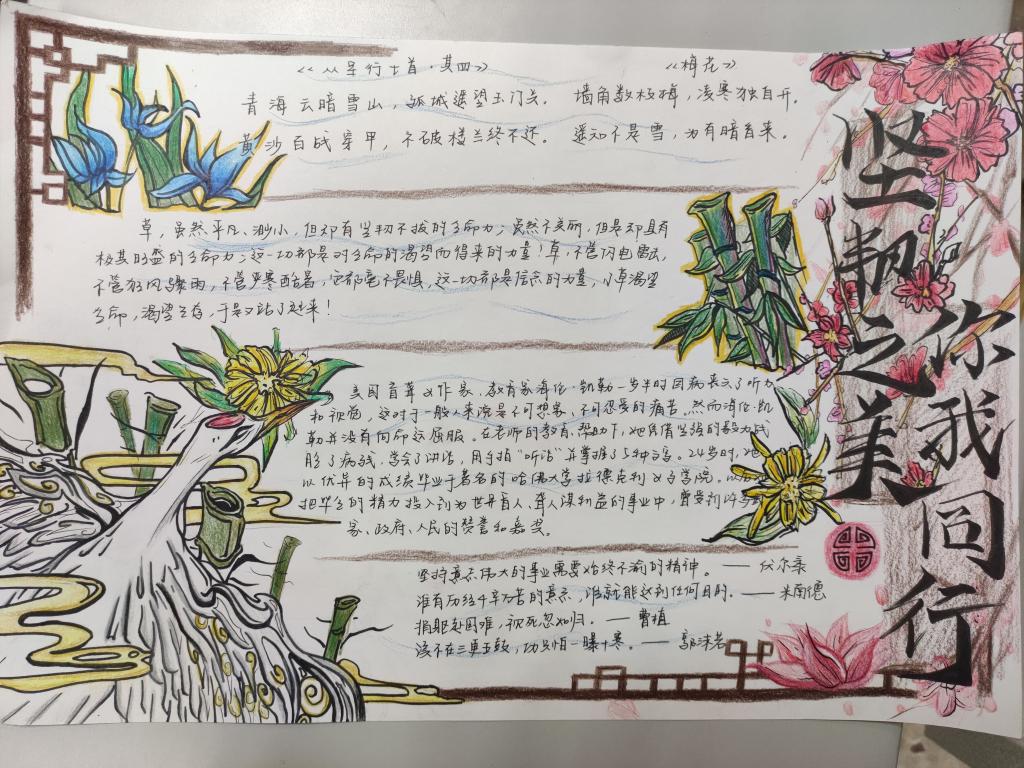 坚韧之美
你我同行
《从军行七首·其四》
青海云暗雪山，孤城遥望玉门关。
黄沙百战穿甲，不破楼兰终不还。
《梅花》
墙角数枝梅，凌寒独自开。
遥知不是雪，为有暗香来。
草，虽然平凡、渺小，但却有坚韧不拔的生命力；虽然不美丽，但是却具有
极其旺盛的生命力；这一切都是对生命的渴望而得来的力量！草，不管闪电雷击，
不管狂风骤雨，不管严寒酷暑，它都毫不畏惧，这一切都是信念的力量，小草渴望
生命，渴望生存，于是又站了起来！
美国盲聋女作家、教育家海伦·凯勒一岁半时因病丧失了听力
和视觉，这对于一般人来说是不可想象、不可忍受的痛苦。然而海伦·凯
勒并没有向命运屈服。在老师的教育、帮助下，她凭借坚强的毅力战
胜了病残，学会了讲话，用手指“听话”并掌握了5种文字。24岁时，她
以优异的成绩毕业于著名的哈佛大学拉德克利女子学院。以后
把毕生的精力投入到为世界盲人、聋人谋利益的事业中，曾受到14
家、政府、人民的赞誉和嘉奖。
坚持意志伟大的事业需要始终不渝的精神。——伏尔泰
谁有历经千辛万苦的意志，谁就能达到任何目的。——米南德
捐躯赴国难，视死忽如归。——曹植
读不在三更五鼓，功只怕一曝十寒。——郭沫若